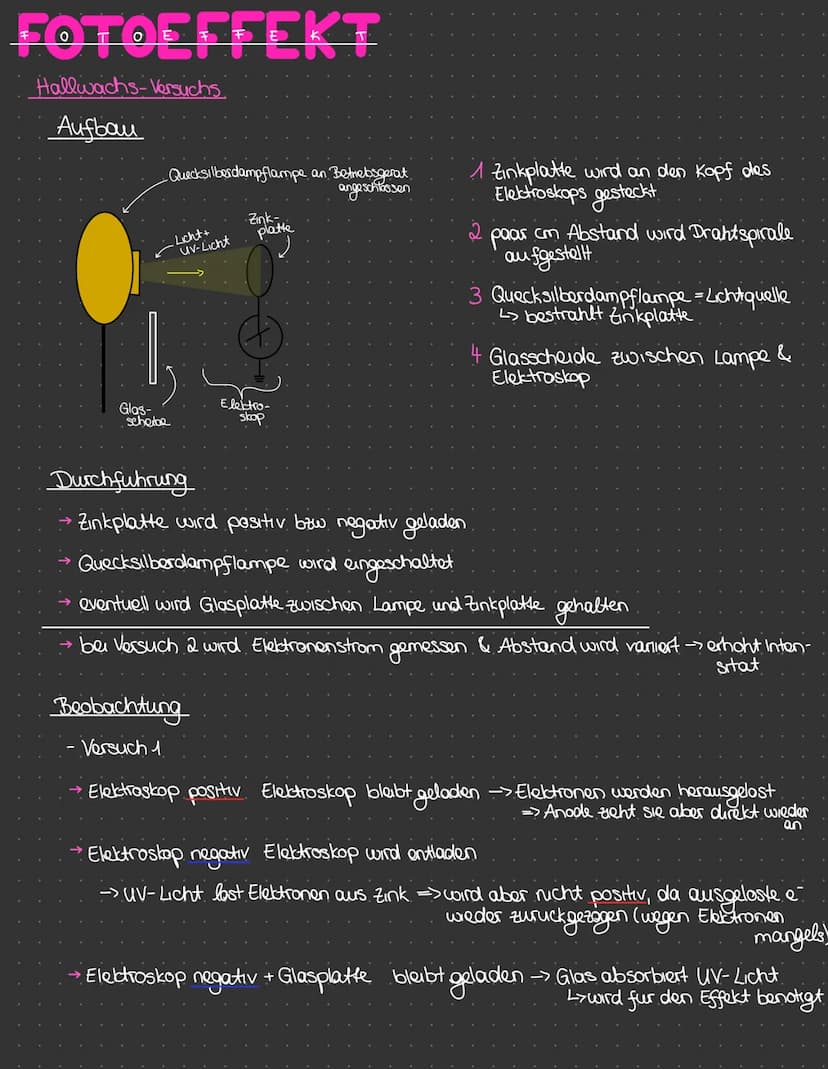 FOTOEFFEKT
FOTOEFFEKT
Hallwachs-Versuchs
Aufbau
Quecksilberdampflampe an Betriebsgerät
angeschlossen
Licht+
UV-Licht
Zink-
platte
Glas-
scheibe
Elektro-
skop
1 Zinkplatte wird an den Kopf des
Elektroskops gesteckt
2 paar cm Abstand wird Drahtspirale
aufgestellt
3 Quecksilberdampflampe = Lichtquelle
↳ bestrahlt Zinkplatte
4 Glasscheide zwischen Lampe &
Elektroskop
Durchführung
→ Zinkplatte wird positiv bzw. negativ geladen
→ Quecksilberdampflampe wird eingeschaltet
→ eventuell wird Glasplatte zwischen Lampe und Zinkplatte gehalten
→ bei Versuch 2 wird Elektronenstrom gemessen & Abstand wird variiert → erhöht Inten-
sität
Beobachtung
- Versuch 1
→ Elektroskop positiv Elektroskop bleibt geladen → Elektronen werden herausgelöst
=> Anode zieht sie aber direkt wieder
an
→ Elektroskop negativ Elektroskop wird entladen
→ UV-Licht löst Elektronen aus Zink => wird aber nicht positiv, da ausgelöste e⁻
wieder zurückgezogen (wegen Elektronen
mangels)
→ Elektroskop negativ + Glasplatte bleibt geladen → Glas absorbiert UV-Licht
↳ wird für den Effekt benötigt